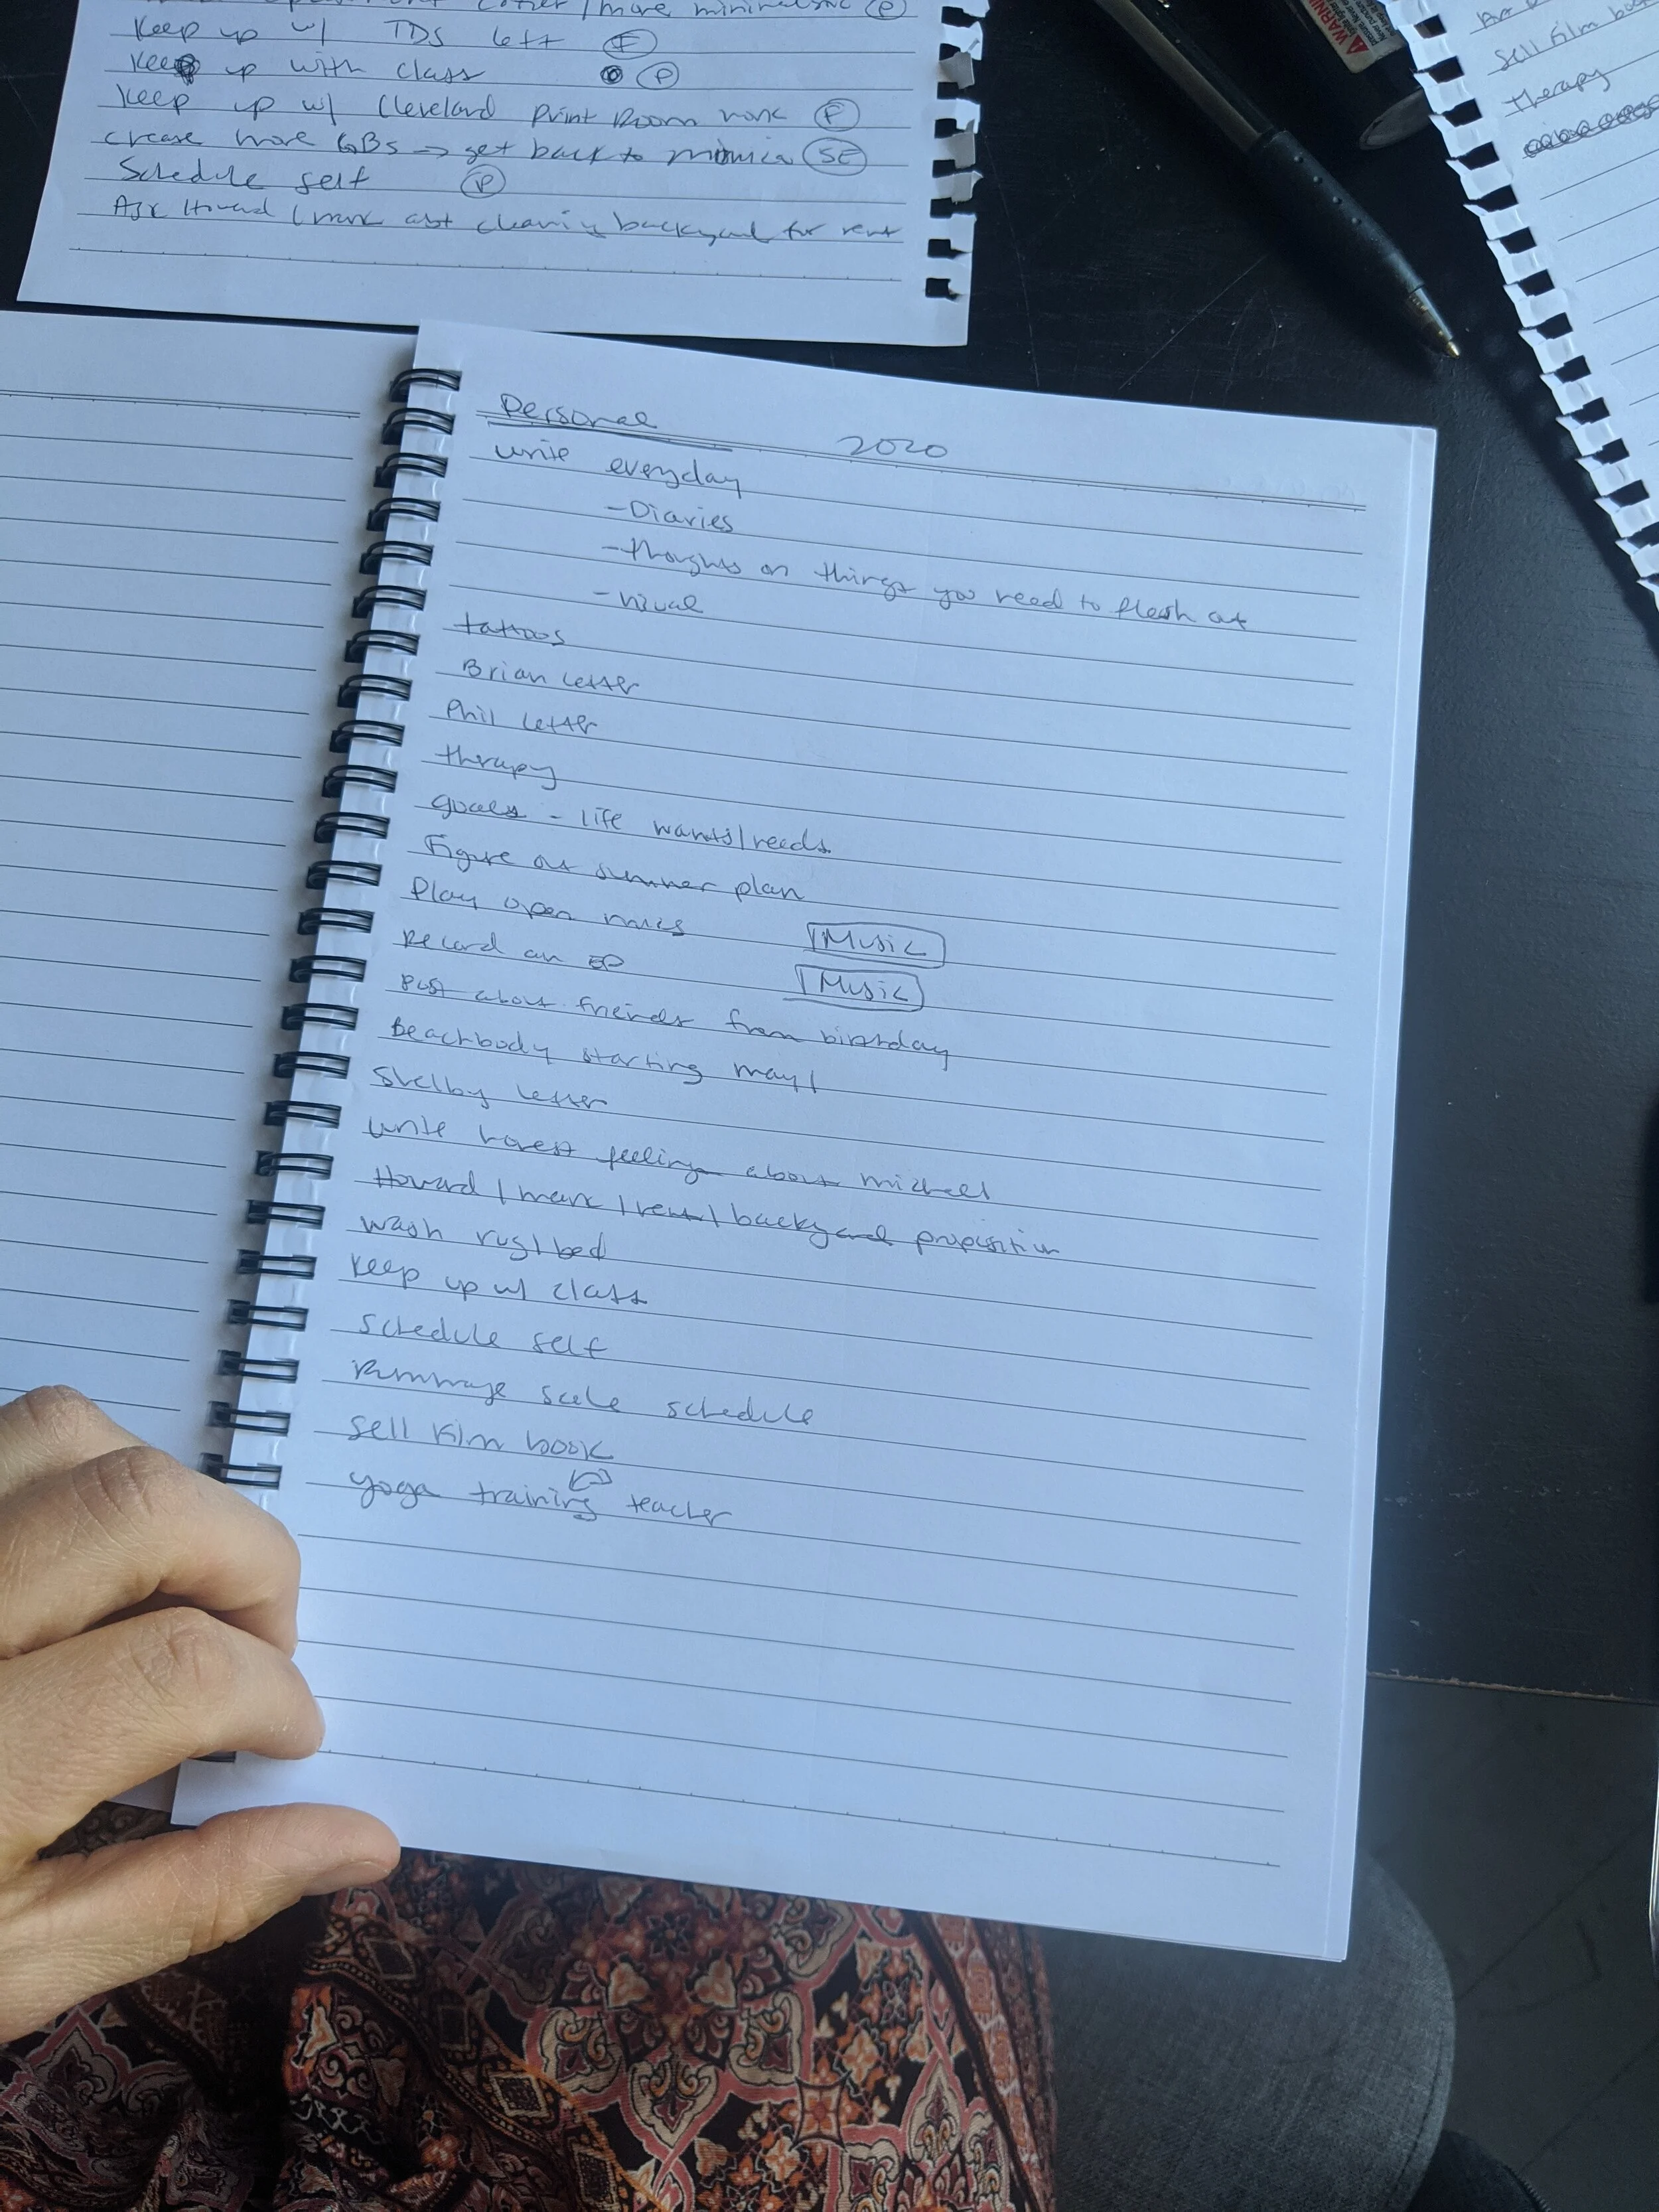 more minimalistic (P)
Keep up w/ TDS left (F)
Keep up with class (P)
Keep up w/ Cleveland Print Room work (F)
create more GBs → get back to (SE)
Schedule self (P)
Ask Howard / Mark abt cleaning backyard for rent
WARNING
Sell Film
therapy
Personal 2020
write everyday
- Diaries
- thoughts on things you need to flesh out
- visual
tattoos
Brian Letter
Phil Letter
therapy
goals - life wants/needs
Figure out summer plan
Play open mics Music
Record an EP Music
Post about friends from birthday
Beachbody starting may 1
Shelby Letter
write honest feelings about michael
Howard / mark / rent / backyard proposition
wash rug/bed
Keep up w/ class
Schedule self
Rummage sale schedule
Sell Film book
yoga training teacher